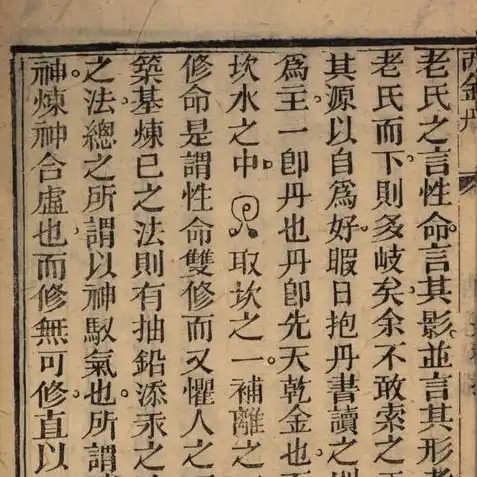 金丹
老氏之言性命言其影並言其形者
老氏而下則多岐矣余不敢索之
其源以自爲好暇日抱丹書讀之
爲主一卽丹也丹卽先天乾金也
坎水之中。取坎之一補離之
修命是謂性命雙修而又懼人之
築基煉已之法則有抽鉛添汞之
之法總之所謂以神馭氣也所謂
神煉神合虛也而修無可修直以